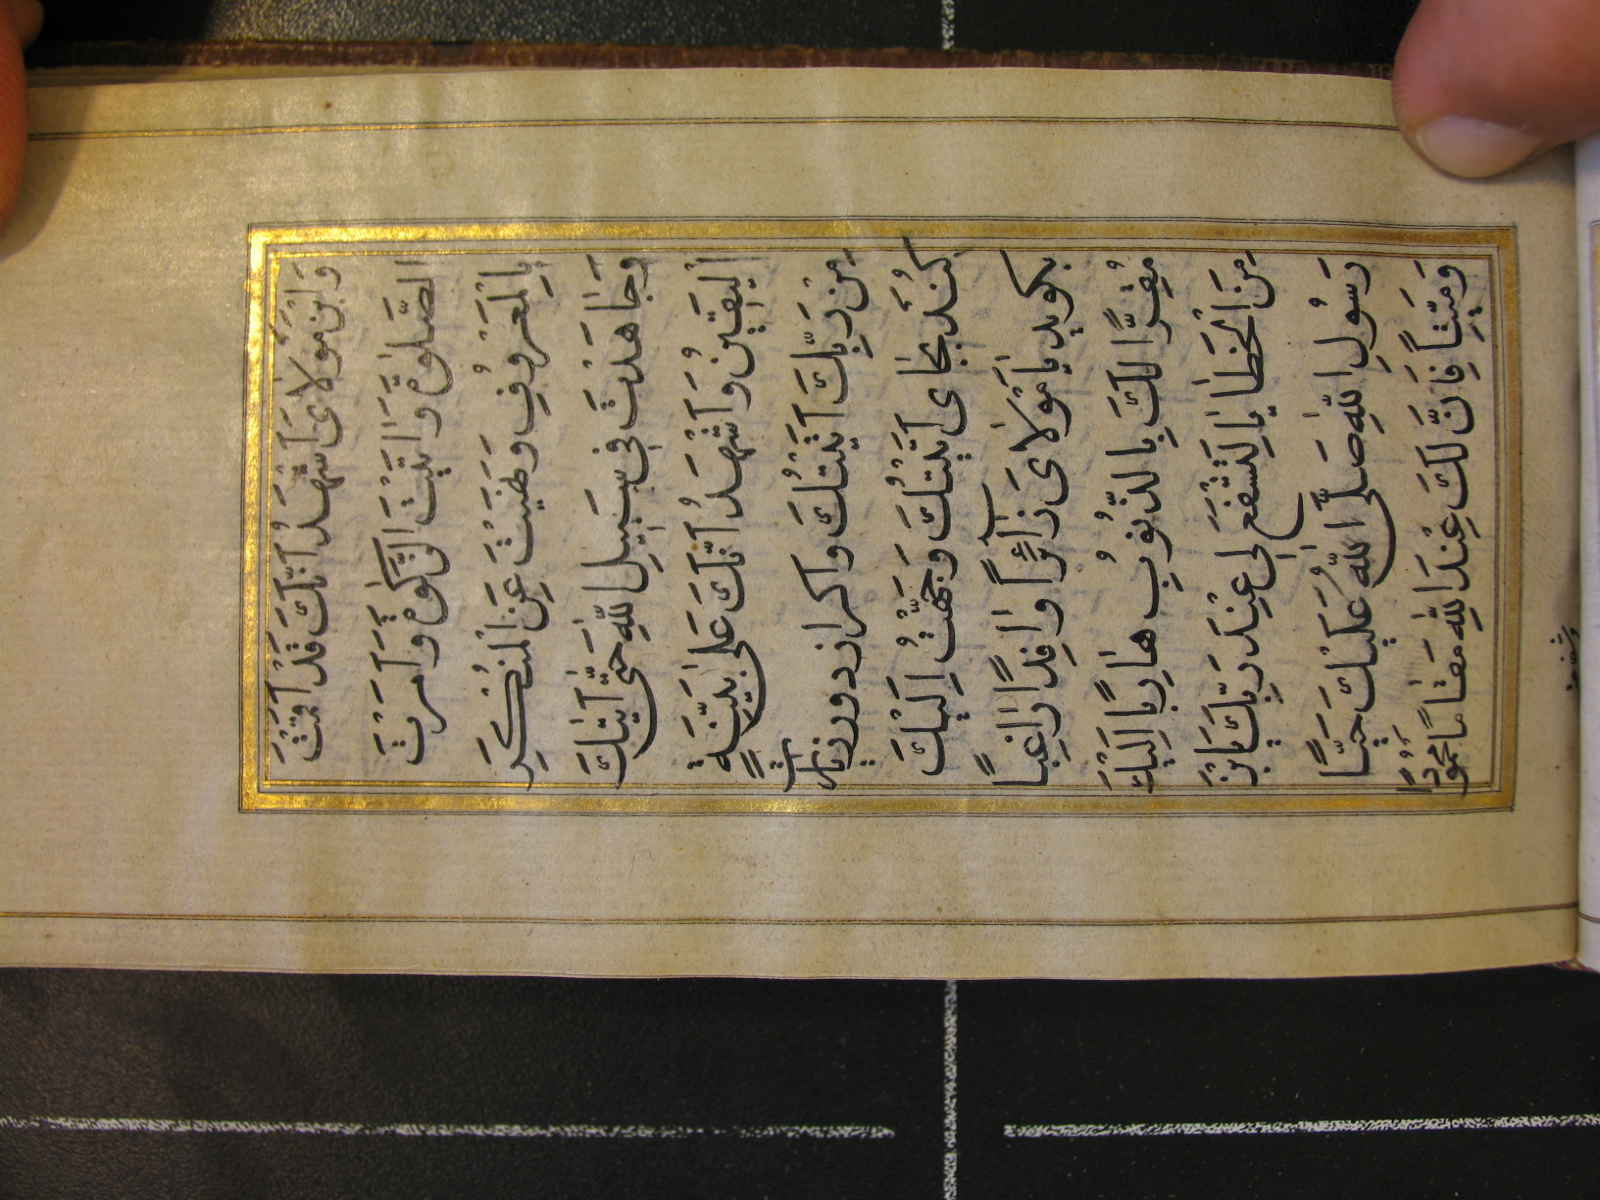 وَابْنَ مَوْلَايَ اَشْهَدُ اَنَّكَ قَدْ اَقَمْتَ
الصَّلٰوةَ وَاٰتَيْتَ الزَّكٰوةَ وَاَمَرْتَ
بِالْمَعْرُوفِ وَنَهَيْتَ عَنِ الْمُنْكَرِ
وَجَاهَدْتَ فِي سَبِيلِ اللّٰهِ حَتّٰى اَتٰيكَ
الْيَقِينُ وَاَشْهَدُ اَنَّكَ عَلٰى بَيِّنَةٍ
مِنْ رَبِّكَ اَتَيْتُكَ واكر از دور زيارت
كند بجاى اَتَيْتُكَ وَجَّهْتُ اِلَيْكَ
بكويد يَا مَوْلَايَ زَائِرًا وَافِدًا رَاغِبًا
مُقِرًّا لَكَ بِالذُّنُوبِ هَارِبًا اِلَيْكَ
مِنَ الْخَطَايَا لِتَشْفَعَ لِي عِنْدَ رَبِّكَ يَابْنَ
رَسُولِ اللّٰهِ صَلَّى اللّٰهُ عَلَيْكَ حَيًّا
وَمَيِّتًا فَاِنَّ لَكَ عِنْدَ اللّٰهِ مَقَامًا مَحْمُودًا